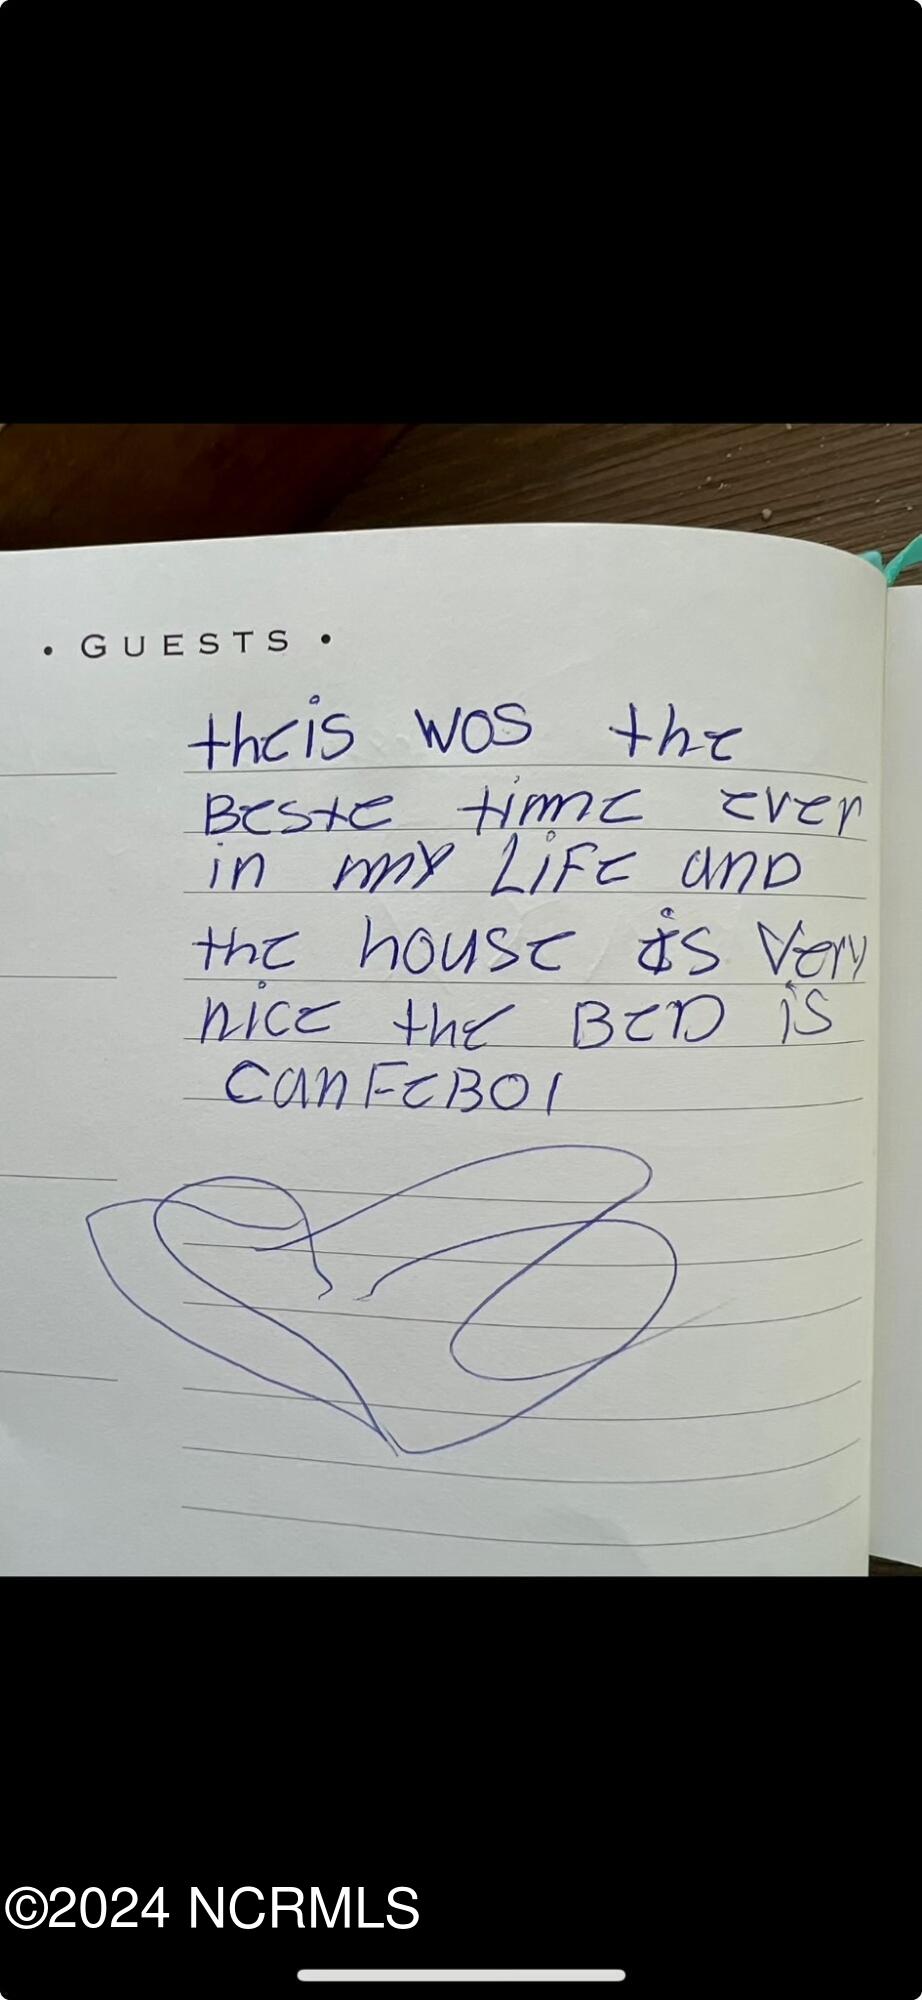 • GUESTS •
theis wos the
Beste time ever
in my LiFe and
the house is very
nice the BeD is
canFeBOl
©2024 NCRMLS